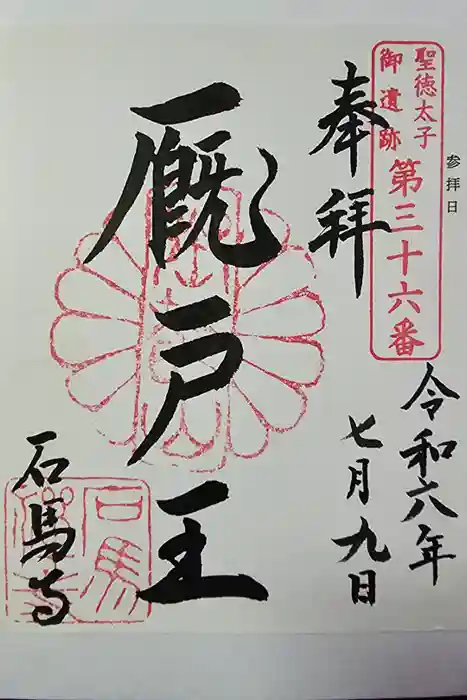 参拝日
聖徳太子
御遺跡
第三十六番
奉拝
令和六年
七月九日
厩戸王
石馬寺
石馬